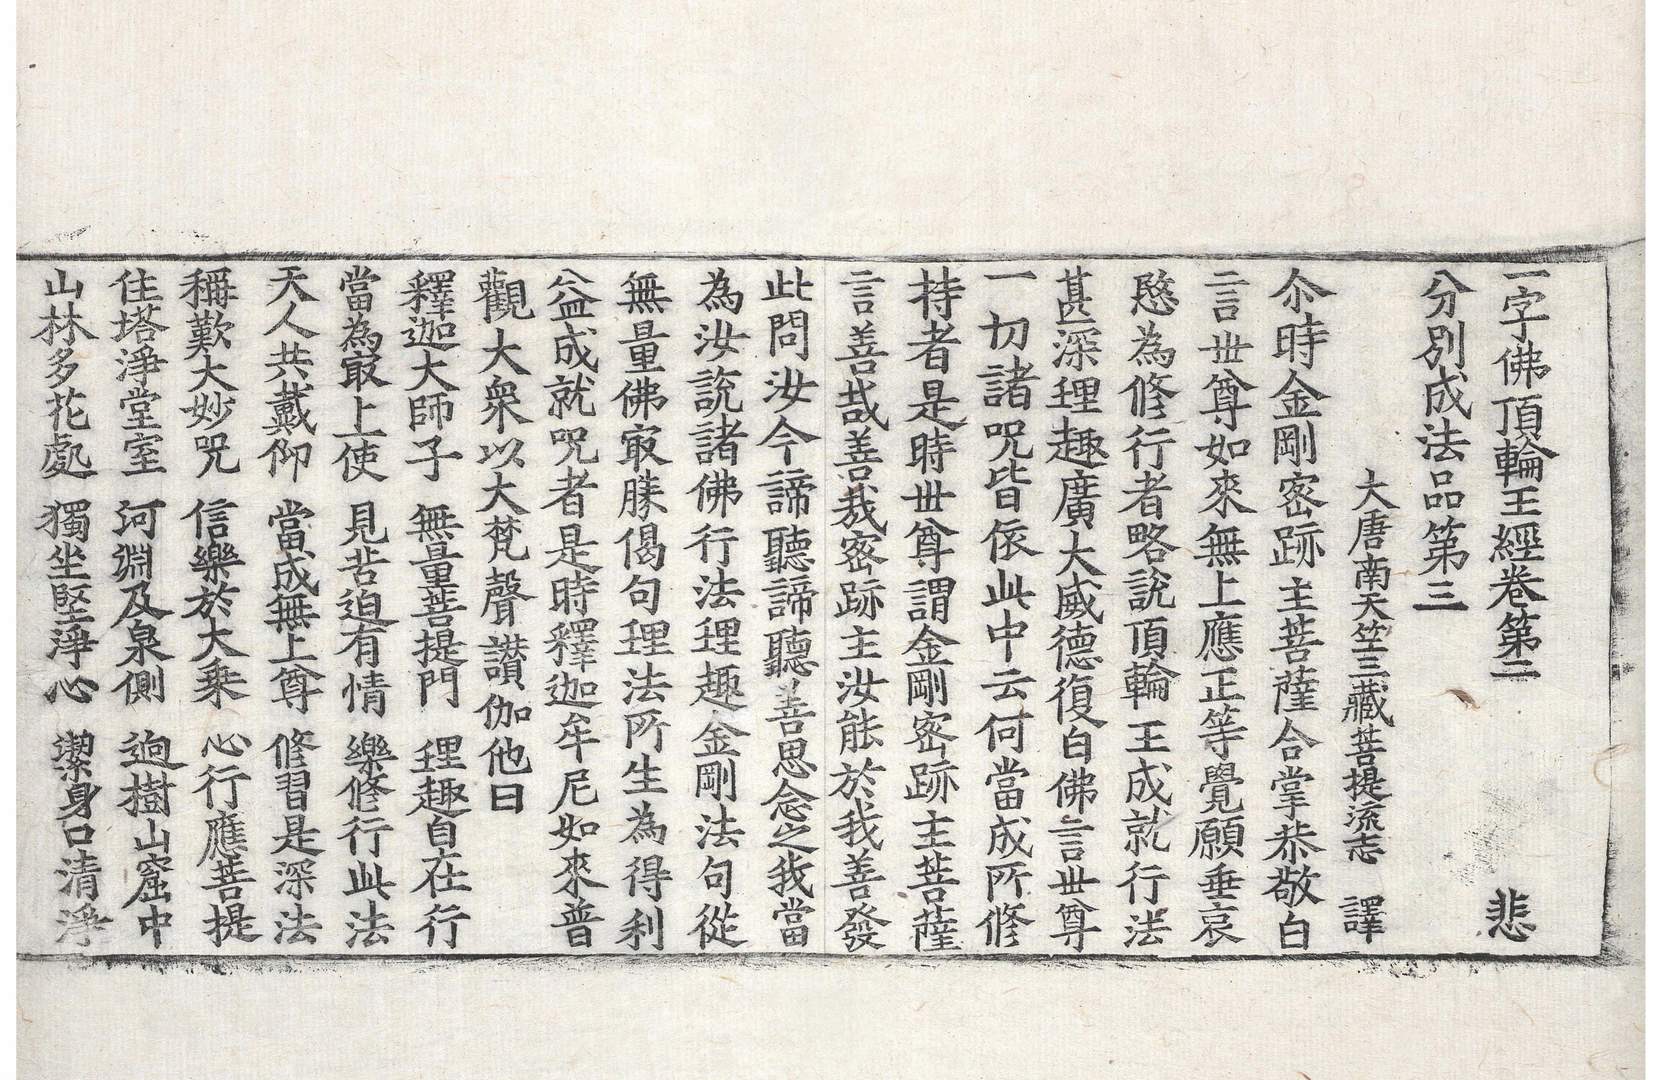 一字佛頂輪王經卷第二 悲
分別成法品第三
大唐南天竺三藏菩提流志 譯
尒時金剛密跡主菩薩合掌恭敬白
言世尊如來無上應正等覺願垂哀
愍為修行者略說頂輪王成就行法
甚深理趣廣大威德復白佛言世尊
一切諸呪皆依此中云何當成所修
持者是時世尊謂金剛密跡主菩薩
言善哉善哉密跡主汝能於我善發
此問汝今諦聽諦聽善思念之我當
為汝說諸佛行法理趣金剛法句從
無量佛㝡勝偈句理法所生為得利
益成就呪者是時釋迦牟尼如來普
觀大衆以大梵聲讃伽他曰
釋迦大師子 無量菩提門 理趣自在行
當為㝡上使 見苦迫有情 樂修行此法
天人共戴仰 當成無上尊 修習是深法
稱歎大妙呪 信樂於大乗 心行應菩提
住塔淨堂室 河淵及泉側 逈樹山窟中
山林多花處 獨坐堅淨心 潔身口清淨